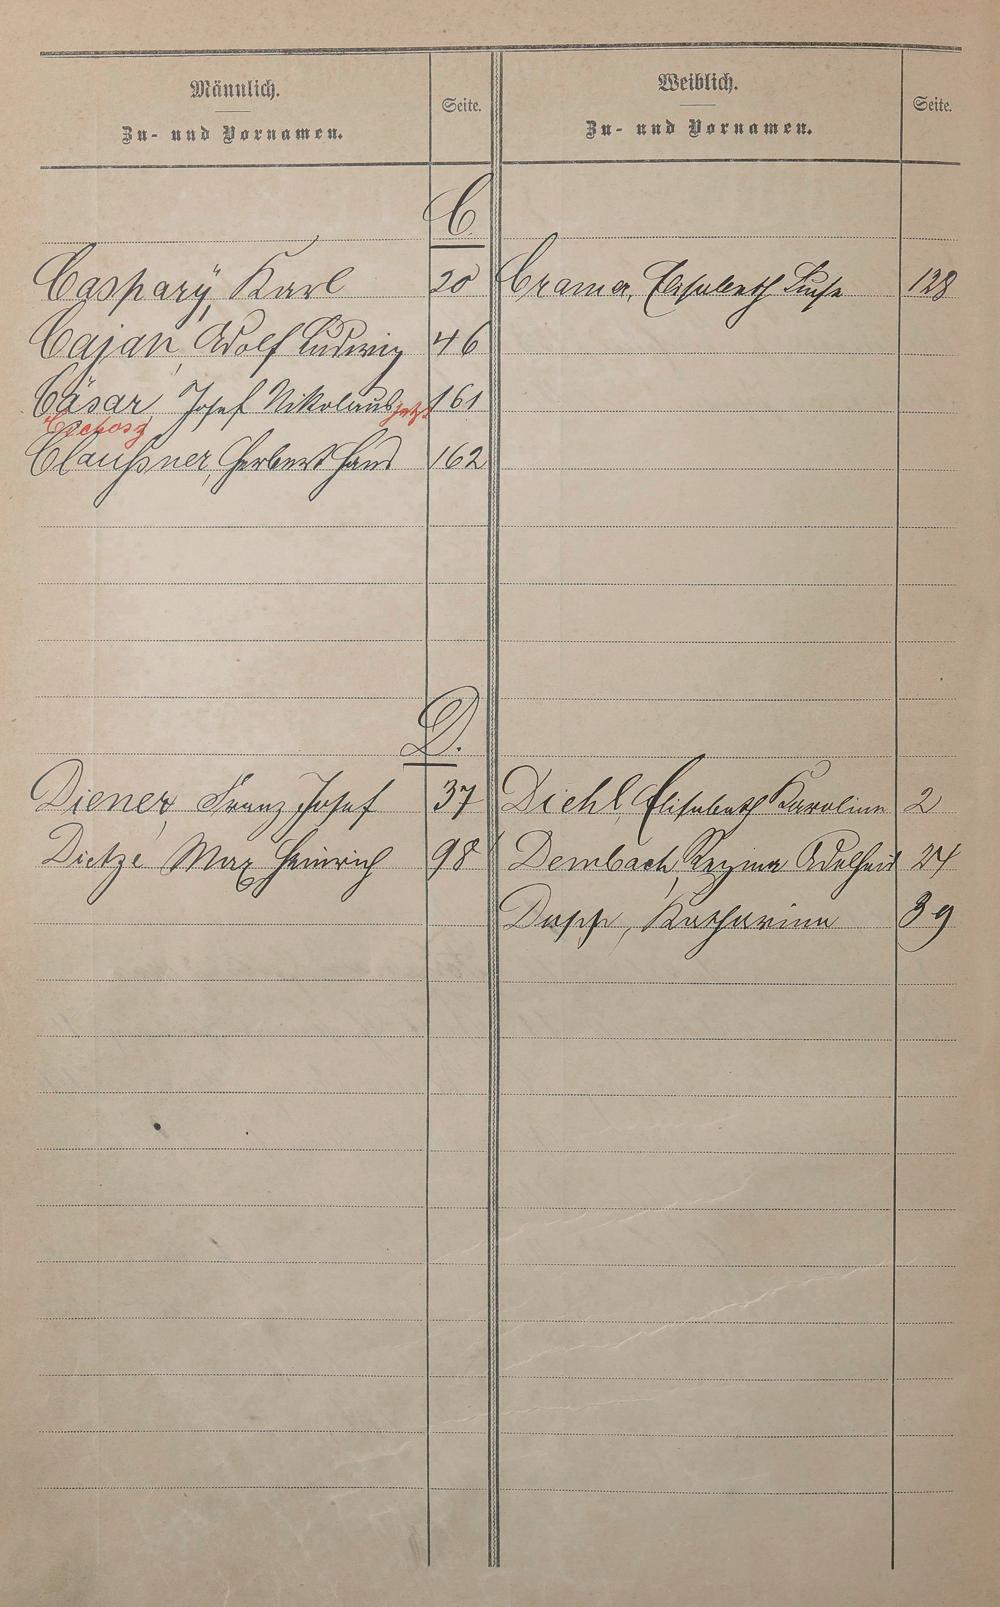 Männlich.
Zu- und Vornamen.
Seite.
Weiblich.
Zu- und Vornamen.
Seite.
C.
Caspary, Karl 20 Cramer, Elisabeth Luise 128
Cajan, Adolf Ludwig 46
Cäsar, Josef Nikolaus jetzt 161
Claußner, Herbert Hans 162
D.
Diener, Franz Josef 37 Diehl, Elisabeth Karoline 2
Dietze Max Heinrich 98 Dembach, Regina Adelheid 24
Dapp, Katharina 39